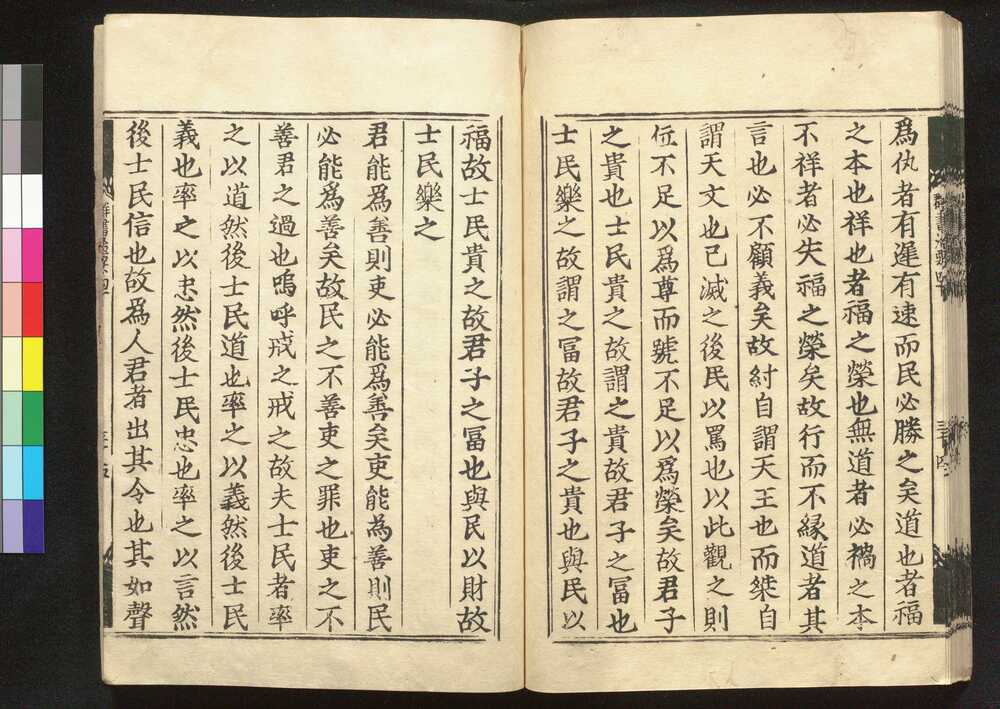 爲仇者有遲有速而民必勝之矣道也者福
之本也祥也者福之榮也無道者必禍之本
不祥者必失福之榮矣故行而不緣道者其
言也必不顧義矣故紂自謂天王也而桀自
謂天父也已滅之後民以罵也以此觀之則
位不足以爲尊而號不足以爲榮矣故君子
之貴也士民貴之故謂之貴故君子之冨也
士民樂之故謂之冨故君子之貴也與民以
福故士民貴之故君子之冨也與民以財故
士民樂之
君能爲善則吏必能爲善矣吏能爲善則民
必能爲善矣故民之不善吏之罪也吏之不
善君之過也嗚呼戒之戒之故夫士民者率
之以道然後士民道也率之以義然後士民
義也率之以忠然後士民忠也率之以言然
後士民信也故爲人君者出其令也其如聲
群書治要四十
三十五